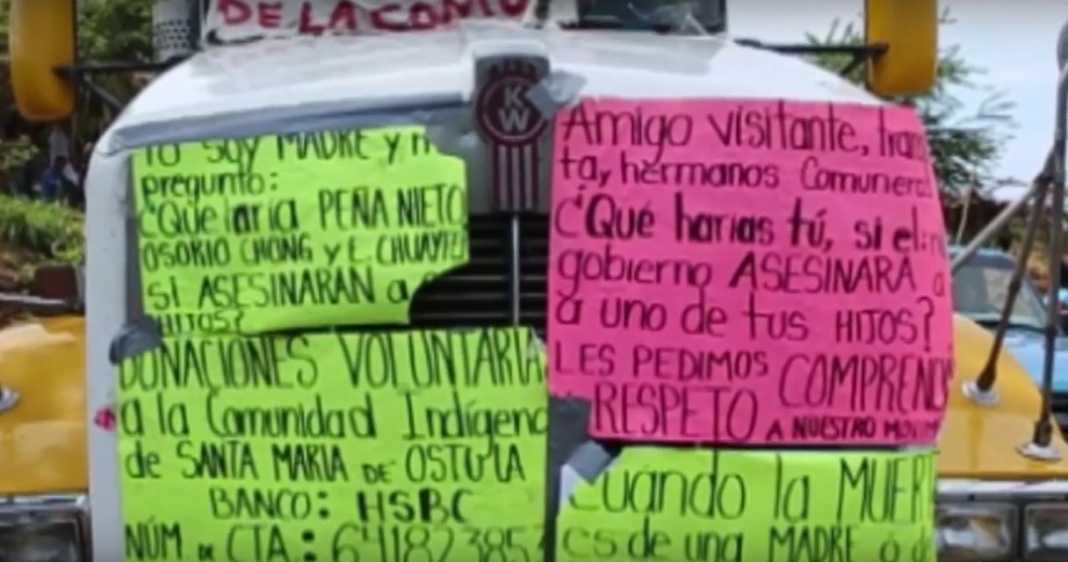 DE LA COMU
KW
YO SOY MADRE y m
pregunto:
¿Que haria PEÑA NIETO
OSORIO CHONG y E. CHUAYFE
si ASESINARAN a
HIJOS?
DONACIONES VOLUNTARIA
a la Comunidad Indígena
de SANTA MARIA DE OSTULA
BANCO: HSBC
NÚM. DE CTA: 641823853
Amigo visitante, trans
ta, hermanos Comuneros
¿Qué harias tú, si el
gobierno ASESINARA a
a uno de tus HIJOS?
LES PEDIMOS COMPRENS
RESPETO A NUESTRO MOVIM
Cuándo la MUER
es de una MADRE ó d